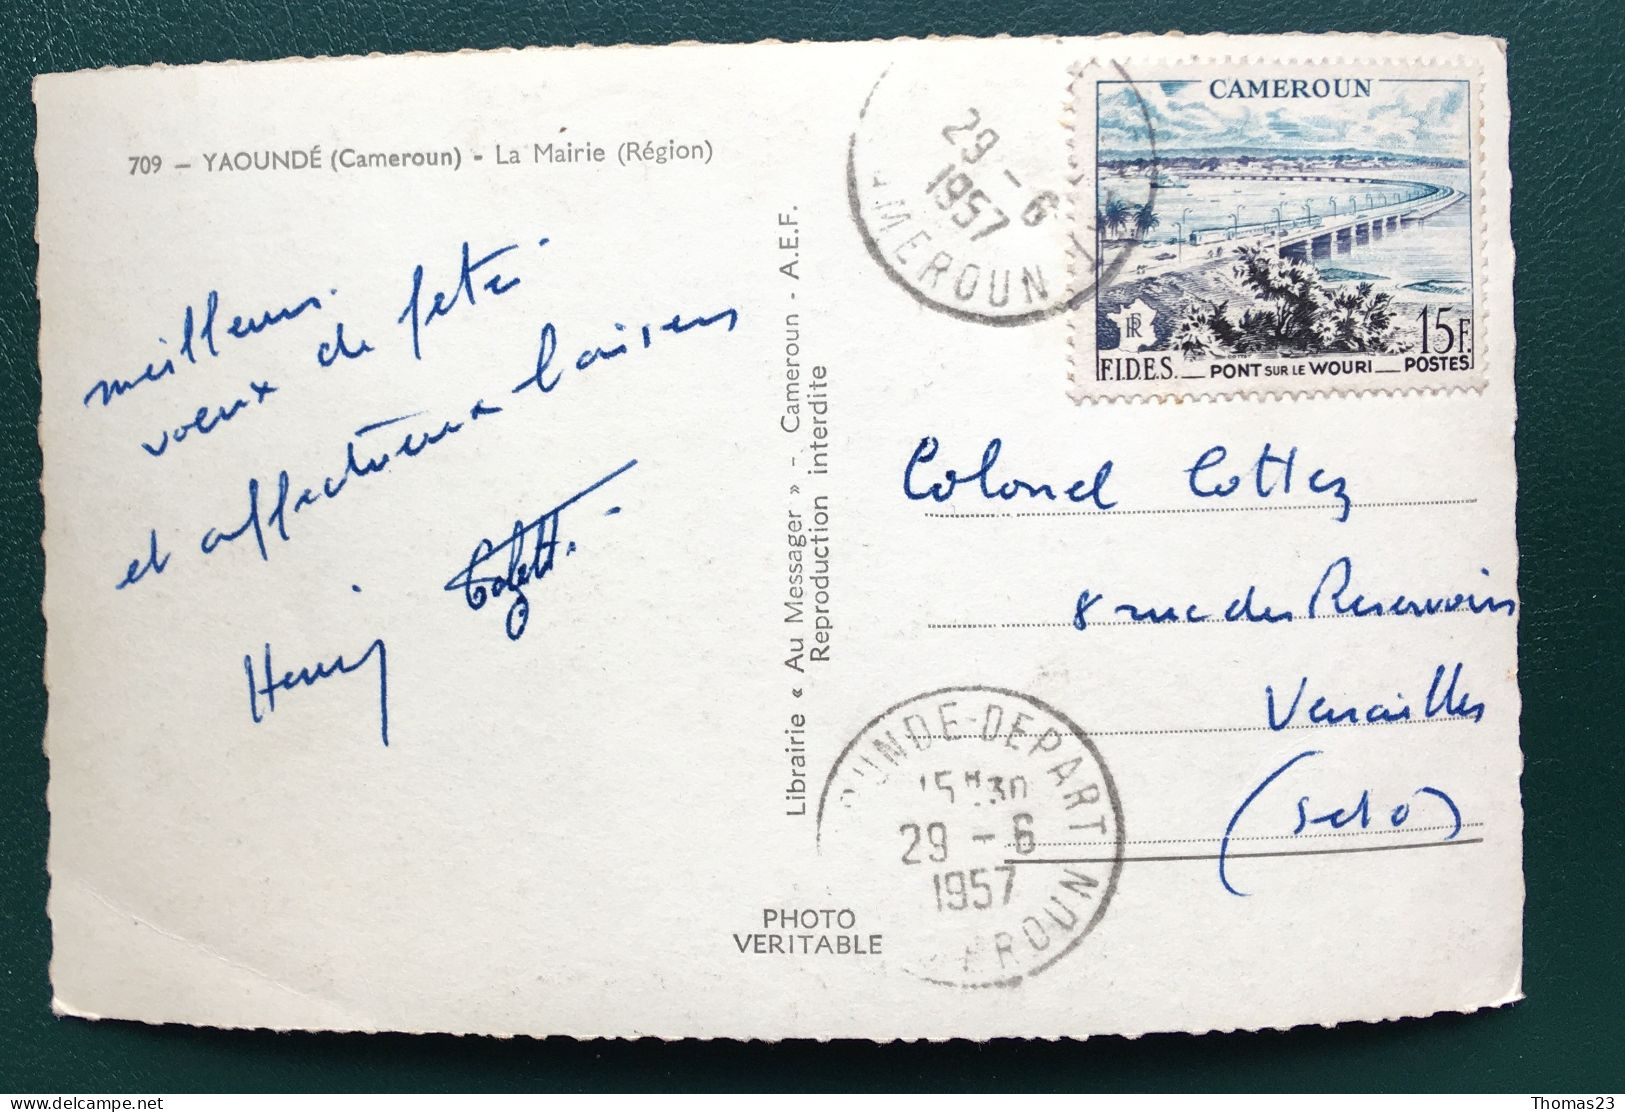 709 — YAOUNDÉ (Cameroun) - La Mairie (Région)
meilleurs
voeux de fêtes
et affectueux baisers
Henry
Librairie « Au Messager » - Cameroun - A.E.F.
Reproduction interdite
PHOTO
VERITABLE
29 - 6
1957
MEROUN
CAMEROUN
RF
15F.
F.I.D.E.S. PONT SUR LE WOURI POSTES
Colonel Cottez
8 rue des Reservoirs
Versailles
(S et O)
OUNDE-DEPART
15H30
29 - 6
1957
ROUN
delcampe.net
Thomas23